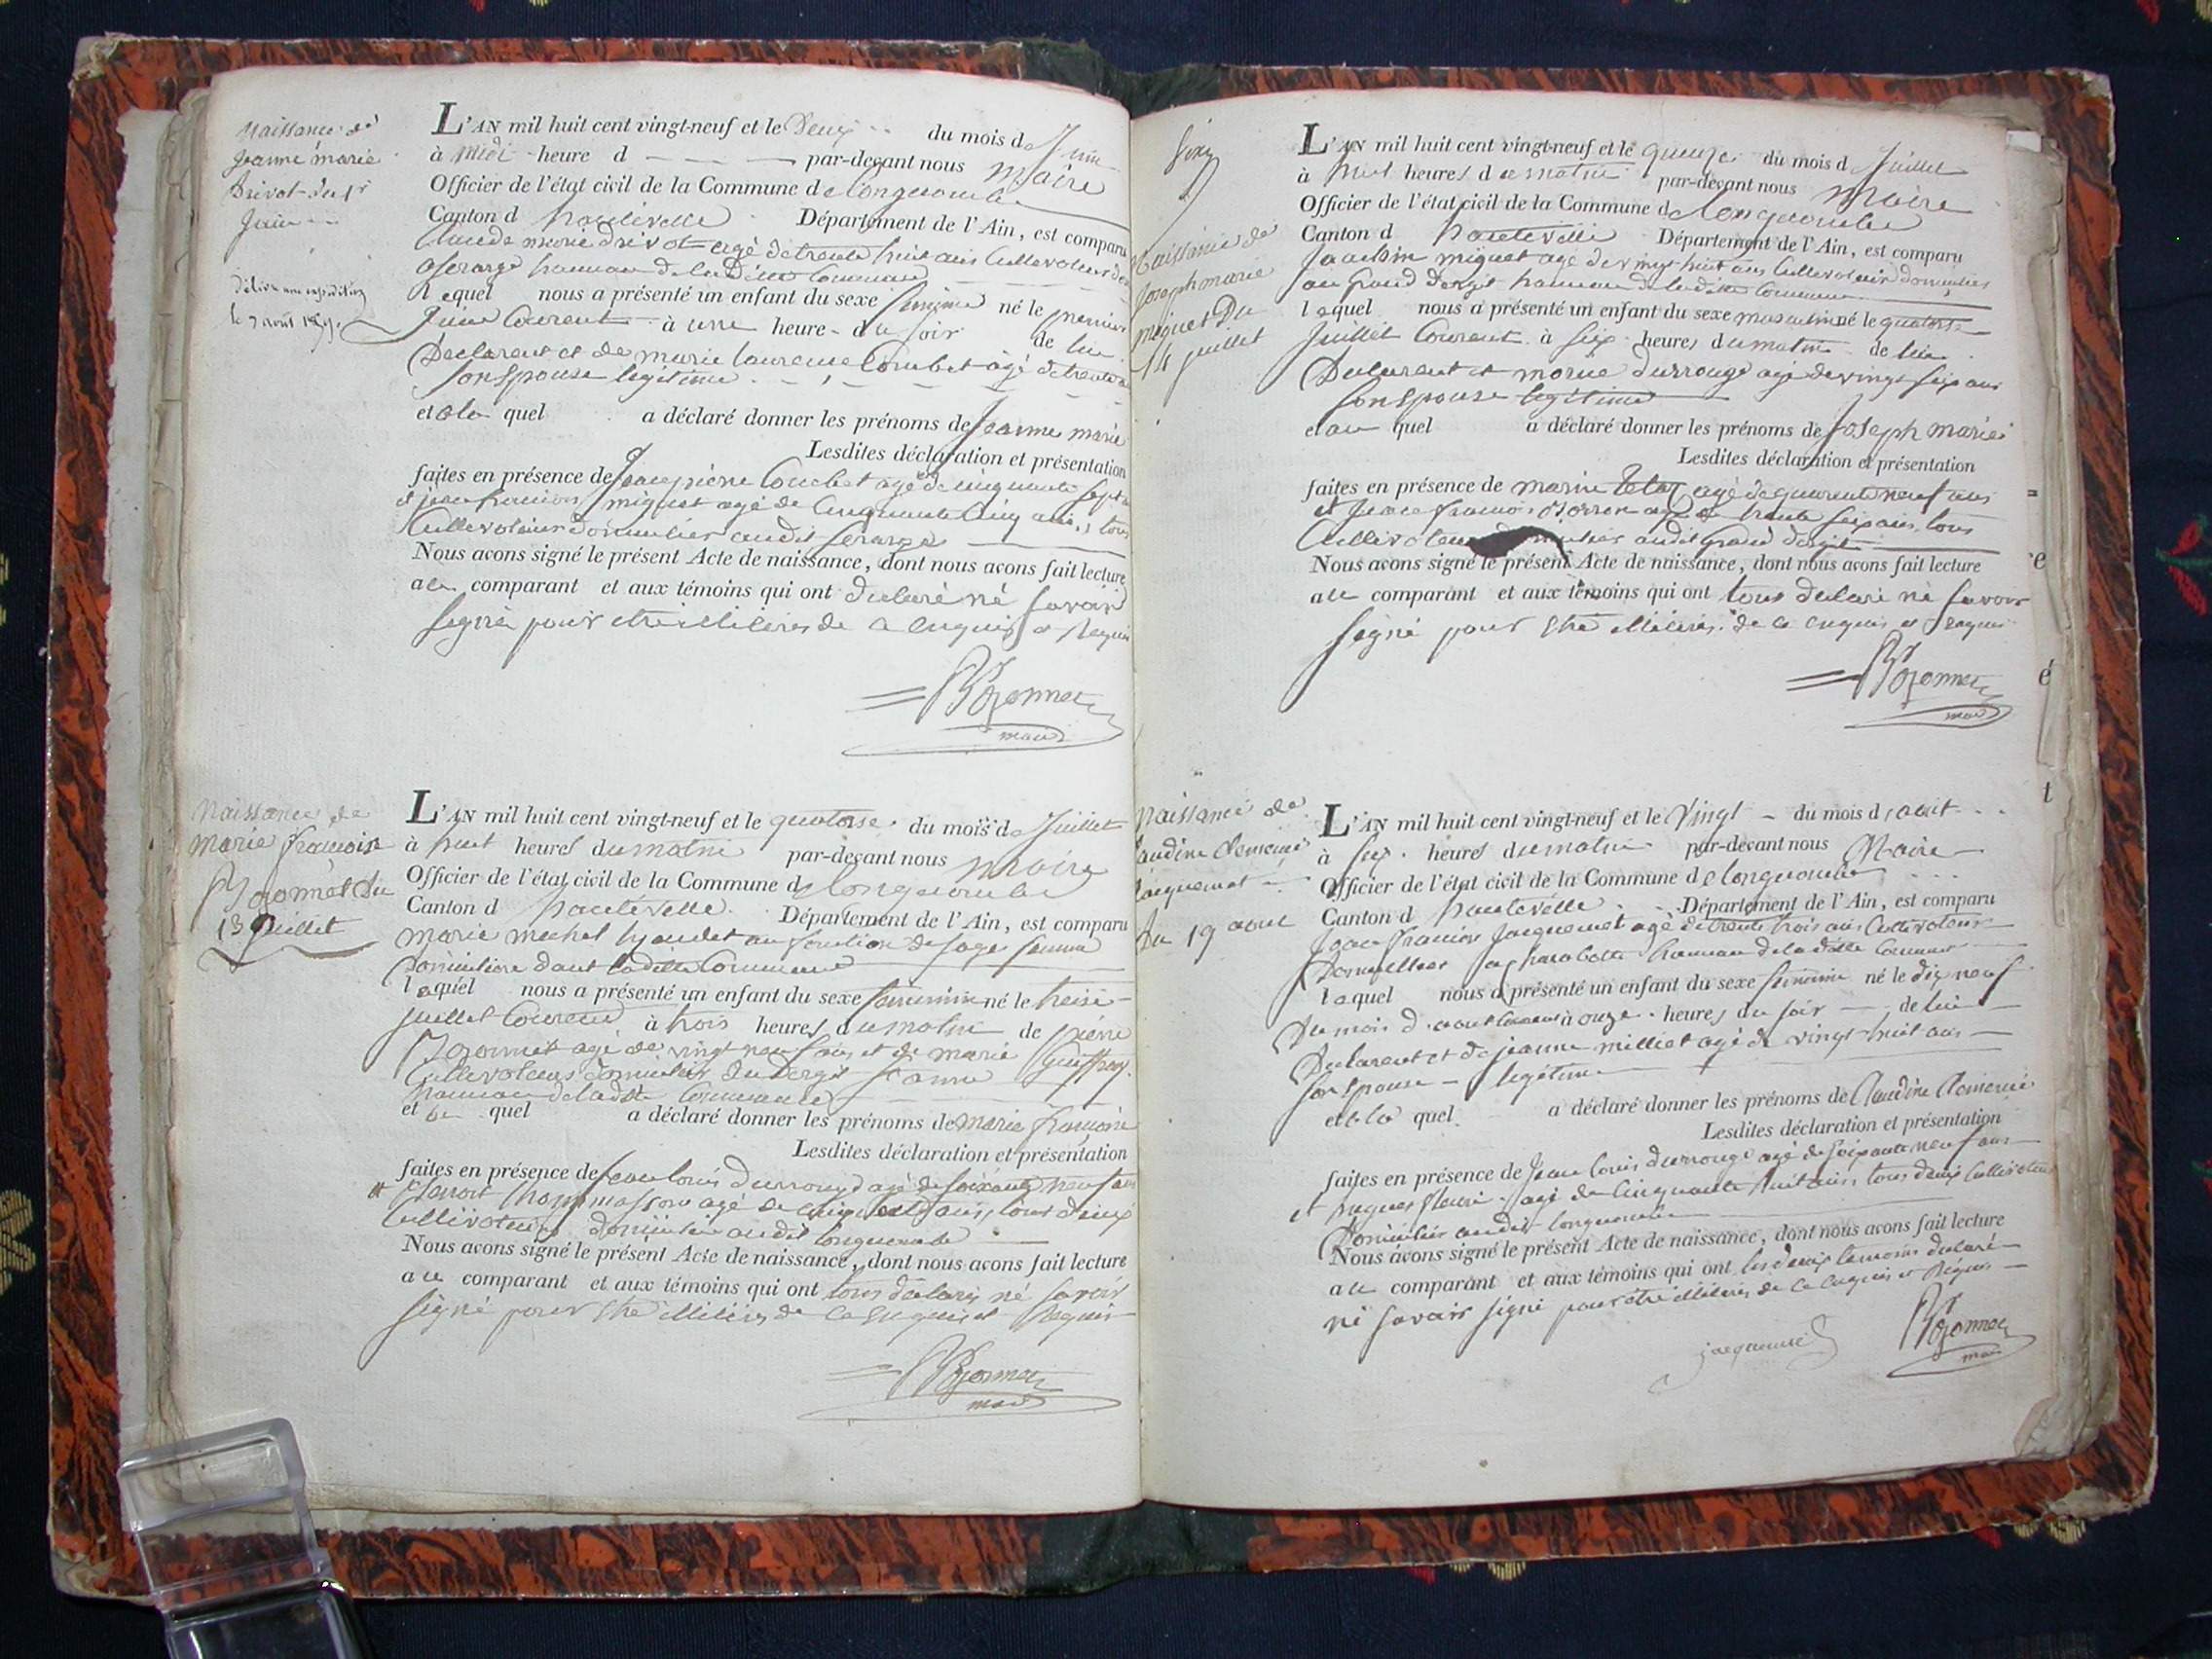 Naissance de
Jeanne marie
Drivot du 1r
Juin
Délivré une expédition
le 7 avril
L'AN mil huit cent vingt-neuf et le Deux du mois de Juin
à midi heure d par-devant nous Maire
Officier de l'état civil de la Commune de longecombe
Canton d hauteville Département de l'Ain, est comparu
Claude marie Drivot agé de trente huit ans Cultivateur
hameau de la Ditte Commune
lequel nous a présenté un enfant du sexe feminin né le premier
Juin Courent à une heure du soir de lui
Declarent et de marie laurence Courbet agé de trente
son Epouse legitime
et a la quel a déclaré donner les prénoms de Jeanne marie
Lesdites déclaration et présentation
faites en présence de Jean pierre Courbet agé de cinquante sept
et jean francois miguet agé de Cinquante Cinq ans, tous
Cultivateurs domiciliés audit
Nous avons signé le présent Acte de naissance, dont nous avons fait lecture
au comparant et aux témoins qui ont declaré ne savoir
signé pour etre illiterés de ce enquis et Requis
Bozonnet
maire
Naissance de
Marie francoise
Bozonnet du
13 Juillet
L'AN mil huit cent vingt-neuf et le quatorse du mois de Juillet
à huit heures du matin par-devant nous Maire
Officier de l'état civil de la Commune de longecombe
Canton d hauteville Département de l'Ain, est comparu
marie michel au fonction de sage femme
domiciliere dans la ditte Commune
laquel nous a présenté un enfant du sexe feminin né le treise
juillet Courent à trois heures du matin de pierre
Bozonnet agé de vingt neuf ans et de marie Guiffray
Cultivateurs domiciliés
hameau de la dite Commune
et quel a déclaré donner les prénoms de marie francoise
Lesdites déclaration et présentation
faites en présence de jean louis Durrouge agé de soixante neuf ans
et Benoit agé de ans, tous deux
Cultivateurs domiciliés audit longecombe
Nous avons signé le présent Acte de naissance, dont nous avons fait lecture
au comparant et aux témoins qui ont tous declaré né savoir
signé pour etre illiterés de ce enquis et Requis
Bozonnet
maire
Six
Naissance de
Joseph marie
miguet Du
14 juillet
L'AN mil huit cent vingt-neuf et le quenze du mois d Juillet
à huit heures du matin par-devant nous Maire
Officier de l'état civil de la Commune de longecombe
Canton d hauteville Département de l'Ain, est comparu
miguet agé de vingt huit ans Cultivateur domicilié
au Grand Dergit hameau de la ditte Commune
lequel nous a présenté un enfant du sexe masculin né le quatorse
Juillet Courent à six heures du matin de lui
Declarent et marie Durrouge agé de vingt six ans
son Epouse legitime
et au quel a déclaré donner les prénoms de Joseph marie
Lesdites déclaration et présentation
faites en présence de marin agé de quarente neuf ans
et Jean francois agé de trente six ans, tous
Cultivateurs audit Grand Dergit
Nous avons signé le présent Acte de naissance, dont nous avons fait lecture
au comparant et aux témoins qui ont tous declaré né savoir
signé pour etre illiterés de ce enquis et requis
Bozonnet
maire
Naissance de
laudine Clemence
Jacquemet
Du 19 aout
L'AN mil huit cent vingt-neuf et le Vingt du mois d aout
à six heures du matin par-devant nous Maire
Officier de l'état civil de la Commune de longecombe
Canton d hauteville Département de l'Ain, est comparu
Jean francois Jacquemet agé de trente trois ans Cultivateur
Domicilier hameau de la ditte Commune
lequel nous a présenté un enfant du sexe feminin né le dix neuf
Du mois d aout Courent à onze heures du soir de lui
Declarent et de jeanne milliet agé de vingt huit ans
son Epouse legitime
et a la quel a déclaré donner les prénoms de Claudine Clemence
Lesdites déclaration et présentation
faites en présence de Jean louis Durrouge agé de soixante neuf ans
et hugues agé de cinquante huit ans, tous deux Cultivateurs
Domiciliés audit longecombe
Nous avons signé le présent Acte de naissance, dont nous avons fait lecture
au comparant et aux témoins qui ont les deux temoins declaré
né savoir signé pour etre illiterés de ce enquis et Requis
jacquemet
Bozonnet
maire